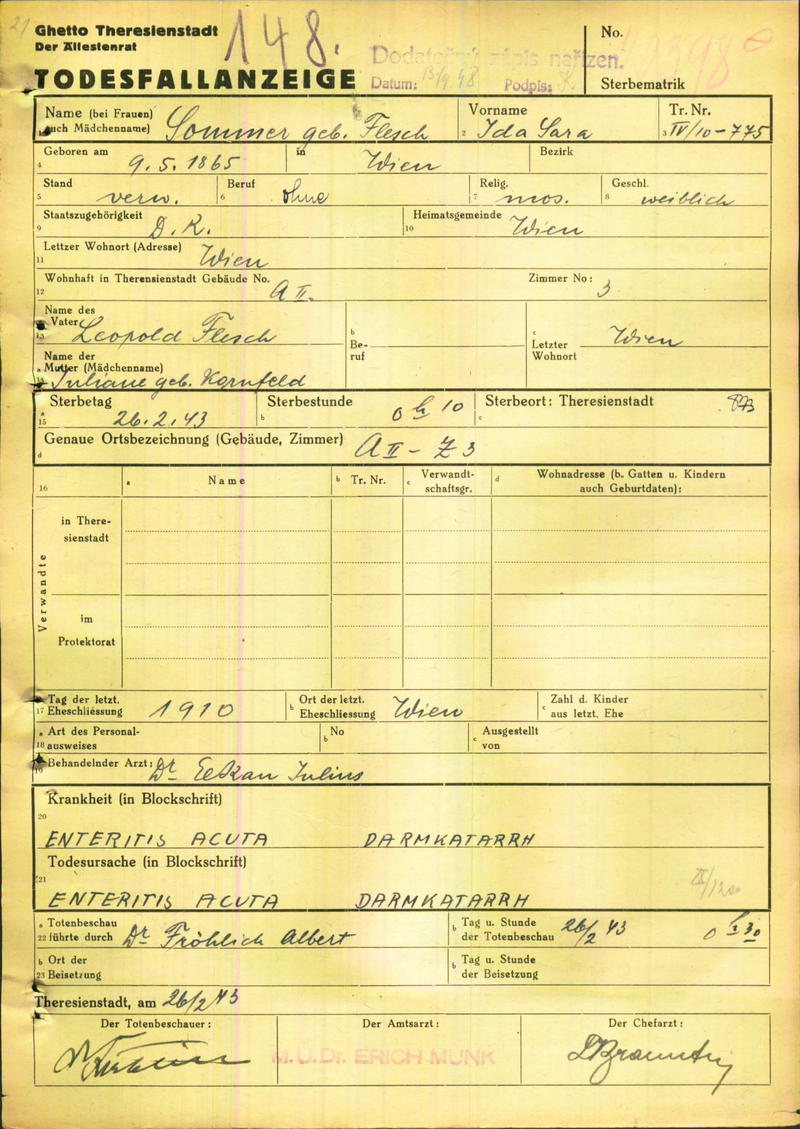 21
Ghetto Theresienstadt
Der Ältestenrat
148.
TODESFALLANZEIGE
Dodatečný zápis nařízen.
Datum: 13/9 48 Podpis:
No.
Sterbematrik
Name (bei Frauen auch Mädchenname) Sommer geb. Flesch
2 Vorname Ida Sara
3 Tr. Nr. IV/10-775
4 Geboren am 9. 5. 1865 in Wien Bezirk
5 Stand verw. 6 Beruf ohne 7 Relig. mos. 8 Geschl. weiblich
9 Staatszugehörigkeit D. R. 10 Heimatsgemeinde Wien
11 Lettzer Wohnort (Adresse) Wien
12 Wohnhaft in Therensienstadt Gebäude No. A II. Zimmer No: 3
13 Name des Vater Leopold Flesch
b Beruf
c Letzter Wohnort Wien
Name der Mutter (Mädchenname)
Juliane geb. Kornfeld
a 15 Sterbetag 26. 2. 43 b Sterbestunde 0 h 10 c Sterbeort: Theresienstadt
d Genaue Ortsbezeichnung (Gebäude, Zimmer) A II - Z 3
16 a Name b Tr. Nr. c Verwandtschaftsgr. d Wohnadresse (b. Gatten u. Kindern auch Geburtdaten):
Verwandte
in Theresienstadt
im Protektorat
17 Tag der letzt. Eheschliessung 1910 b Ort der letzt. Eheschliessung Wien c Zahl d. Kinder aus letzt. Ehe
a 18 Art des Personalausweises b No c Ausgestellt von
19 Behandelnder Arzt: Dr Julius
Krankheit (in Blockschrift)
20
ENTERITIS ACUTA DARMKATARRH
Todesursache (in Blockschrift)
21
ENTERITIS ACUTA DARMKATARRH
a 22 Totenbeschau führte durch Dr Fröhlich Albert b Tag u. Stunde der Totenbeschau 26/2 43 0 h 30
b 23 Ort der Beisetzung b Tag u. Stunde der Beisetzung
Theresienstadt, am 26/2 43
Der Totenbeschauer: Der Amtsarzt: Der Chefarzt:
M.U.Dr. ERICH MUNK